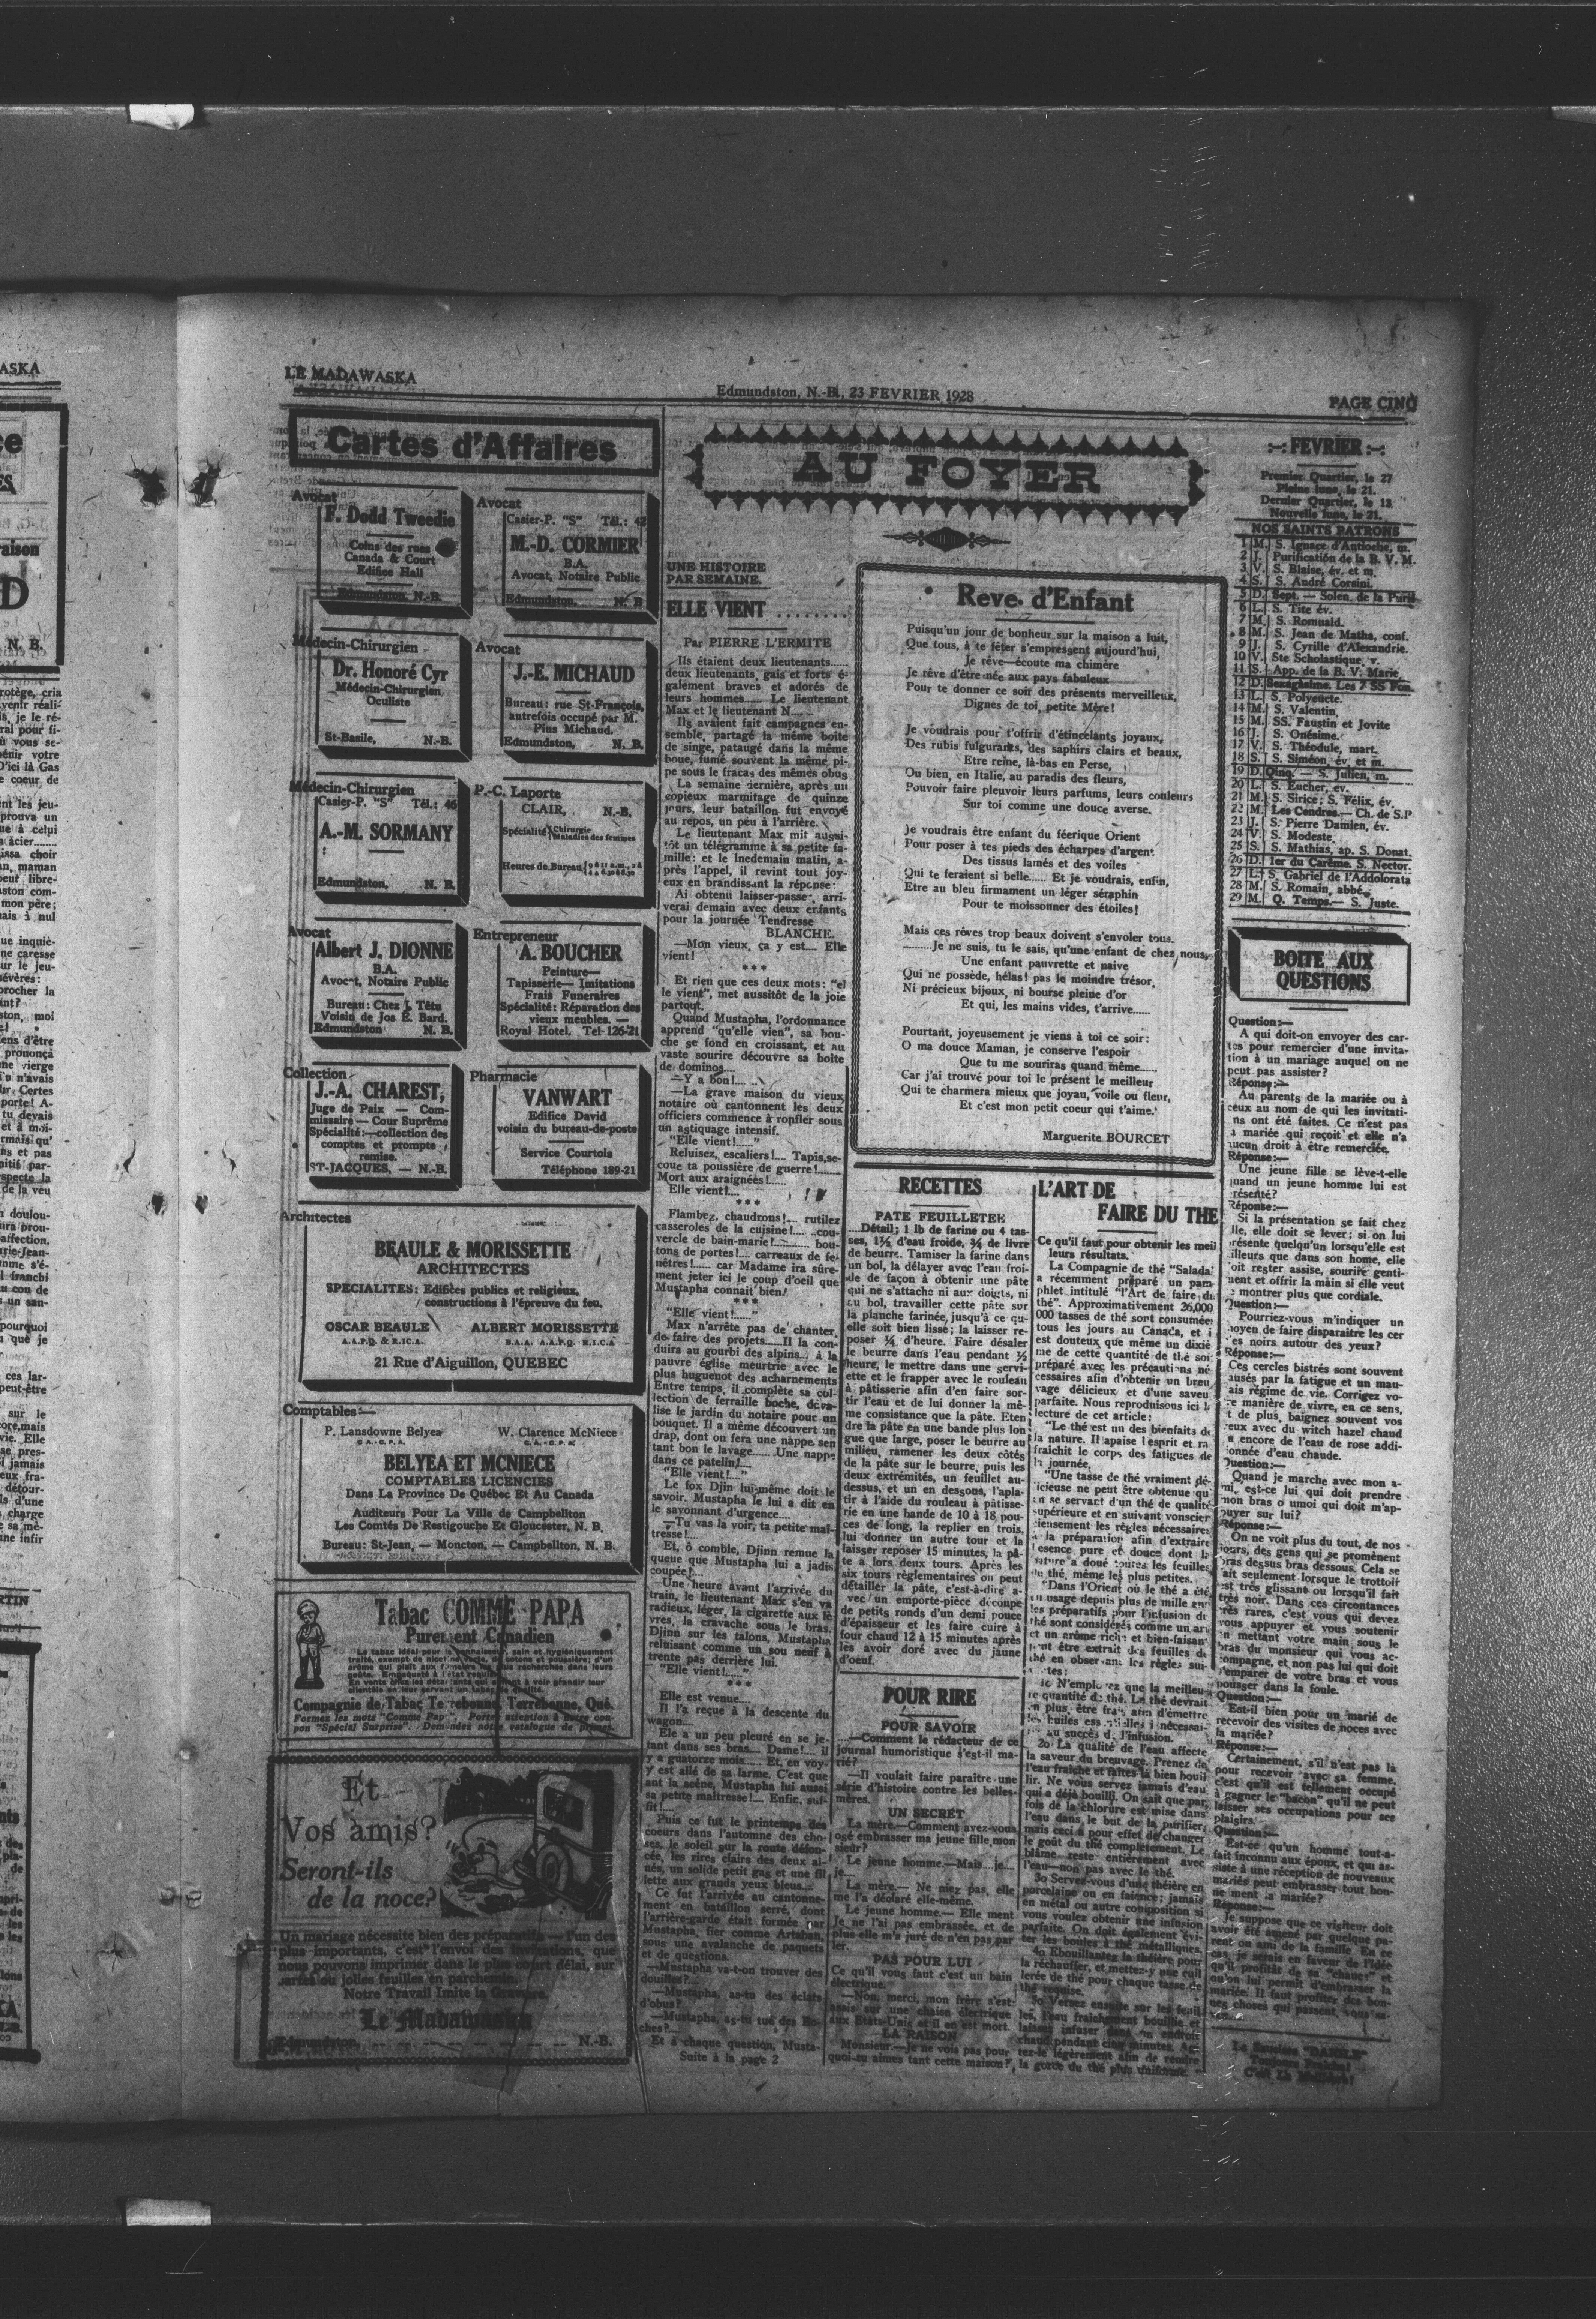 LE MADAWASKA
Edmundston, N.-B., 23 FEVRIER 1928
PAGE CINQ
Cartes d'Affaires
Avocat
F. Dodd Tweedie
Coins des rues
Canada & Court
Edifice Hall
Edmundston, N.-B.
Avocat
Casier-P. "S" Tél.: 42
M.-D. CORMIER
B.A.
Avocat, Notaire Public
Edmundston, N. B.
Médecin-Chirurgien
Dr. Honoré Cyr
Médecin-Chirurgien
Oculiste
St-Basile, N.-B.
Avocat
J.-E. MICHAUD
Bureau: rue St-François,
autrefois occupé par M.
Pius Michaud.
Edmundston, N. B.
Médecin-Chirurgien
Casier-P. "S" Tél.: 46
A.-M. SORMANY
Edmundston, N. B.
P.-C. Laporte
CLAIR, N.-B.
Spécialité Chirurgie
Maladies des femmes
Heures de Bureau
Avocat
Albert J. DIONNE
B.A.
Avocat, Notaire Public
Bureau: Chez J. Têtu
Voisin de Jos E. Bard.
Edmundston N. B.
Entrepreneur
A. BOUCHER
Peinture—
Tapisserie— Imitations
Frais Funeraires
Spécialité: Réparation des
vieux meubles. —
Royal Hotel. Tel-126-21
Collection
J.-A. CHAREST,
Juge de Paix — Com-
missaire — Cour Suprême
Spécialité:—collection des
comptes et prompte
remise.
ST-JACQUES, — N.-B.
Pharmacie
VANWART
Edifice David
voisin du bureau-de-poste
Service Courtois
Téléphone 189-21
Architectes
BEAULE & MORISSETTE
ARCHITECTES
SPECIALITES: Edifices publics et religieux,
constructions à l'épreuve du feu.
OSCAR BEAULE ALBERT MORISSETTE
A.A.P.Q. & R.I.C.A. B.A.A. A.A.P.Q. R.I.C.A
21 Rue d'Aiguillon, QUEBEC
Comptables:—
P. Lansdowne Belyea W. Clarence McNiece
C.A.-C.P.A. C.A.-C.P.A.
BELYEA ET MCNIECE
COMPTABLES LICENCIES
Dans La Province De Québec Et Au Canada
Auditeurs Pour La Ville de Campbellton
Les Comtés De Restigouche Et Gloucester, N. B.
Bureau: St-Jean, — Moncton, — Campbellton, N. B.
Tabac COMME PAPA
Purement Canadien
Le tabac idéal pour le connaisseur, sain et hygiéniquement
Compagnie de Tabac Terrebonne, Terrebonne, Qué.
Formez les mots "Comme Papa". Portez attention à notre cou-
pon "Spécial Surprise". Demandez notre catalogue de primes.
Et
Vos amis?
Seront-ils
de la noce?
Un mariage nécessite bien des préparatifs. l'un des
plus importants, c'est l'envoi des invitations, que
nous pouvons imprimer dans le plus court délai, sur
cartes ou jolies feuilles en parchemin.
Notre Travail Imite la Gravure.
Le Madawaska
Edmundston N.-B.
AU FOYER
UNE HISTOIRE
PAR SEMAINE.
ELLE VIENT ........
Par PIERRE L'ERMITE
Ils étaient deux lieutenants......
deux lieutenants, gais et forts é-
galement braves et adorés de
leurs hommes...... Le lieutenant
Max et le lieutenant N......
Ils avaient fait campagnes en-
semble, partagé la même boite
de singe, pataugé dans la même
boue, fumé souvent la même pi-
pe sous le fracas des mêmes obus
La semaine dernière, après un
copieux marmitage de quinze
jours, leur bataillon fut envoyé
au repos, un peu à l'arrière.
Le lieutenant Max mit aussi-
tôt un télégramme à sa petite fa-
mille: et le lnedemain matin, a-
près l'appel, il revint tout joy-
eux en brandissant la réponse:
Ai obtenu laisser-passer, arri-
verai demain avec deux enfants
pour la journée Tendresse
BLANCHE.
—Mon vieux, ça y est.... Elle
vient!
***
Et rien que ces deux mots: "el
le vient", met aussitôt de la joie
partout.
Quand Mustapha, l'ordonnance
apprend "qu'elle vien", sa bou-
che se fond en croissant, et au
vaste sourire découvre sa boite
de dominos....
—Y a bon!....
—La grave maison du vieux
notaire où cantonnent les deux
officiers commence à ronfler sous
un astiquage intensif.
"Elle vient!......"
Reluisez, escaliers!.... Tapis,se-
coue ta poussière de guerre!......
Mort aux araignées!......
Elle vient!....
***
Flambez, chaudrons!.... rutilez
casseroles de la cuisine!.... ..cou-
vercle de bain-marie!.......... bou-
tons de portes!.... carreaux de fe-
nêtres!...... car Madame ira sûre-
ment jeter ici le coup d'oeil que
Mustapha connait bien!
***
"Elle vient!......"
Max n'arrête pas de chanter,
de faire des projets......Il la con-
duira au gourbi des alpins... à la
pauvre église meurtrie avec le
plus huguenot des acharnements
Entre temps, il complète sa col-
lection de ferraille boche, déva-
lise le jardin du notaire pour un
bouquet. Il a même découvert un
drap, dont on fera une nappe sen
tant bon le lavage........ Une nappe
dans ce patelin!....
"Elle vient!...."
Le fox Djin lui-même doit le
savoir. Mustapha le lui a dit en
le savonnant d'urgence....
—Tu vas la voir, ta petite maî-
tresse!....
Et, ô comble, Djinn remue la
queue que Mustapha lui a jadis
coupée!....
Une heure avant l'arrivée du
train, le lieutenant Max s'en va
radieux, léger, la cigarette aux lè
vres, la cravache sous le bras.
Djinn sur les talons, Mustapha
reluisant comme un sou neuf à
trente pas derrière lui.
"Elle vient!......"
***
Elle est venue....
Il l'a reçue à la descente du
wagon....
Ele a un peu pleuré en se je-
tant dans ses bras.... Dame!.... il
y a quatorze mois...... Et, en voy-
y est allé de sa larme. C'est que
ant la scène, Mustapha lui aussi
sa petite maitresse!.... Enfin, suf-
fit!....
Puis ce fut le printemps des
coeurs dans l'automne des cho-
ses, le soleil sur la route défon-
cée, les rires clairs des deux ai-
nés, un solide petit gas et une fil
lette aux grands yeux bleus....
Ce fut l'arrivée au cantonne-
ment en bataillon serré, dont
l'arrière-garde était formée par
Mustapha, fier comme Artaban,
sous une avalanche de paquets
et de questions.
—Mustapha va-t-on trouver des
douilles?....
—Mustapha, as-tu des éclats
d'obus?
—Mustapha, as-tu tué des Bo-
ches?....
Et à chaque question, Musta-
Suite à la page 2
Reve d'Enfant
Puisqu'un jour de bonheur sur la maison a luit,
Que tous, à te fêter s'empressent aujourd'hui,
Je rêve—écoute ma chimère
Je rêve d'être née aux pays fabuleux
Pour te donner ce soir des présents merveilleux,
Dignes de toi, petite Mère!
Je voudrais pour t'offrir d'étincelants joyaux,
Des rubis fulgurants, des saphirs clairs et beaux,
Etre reine, là-bas en Perse,
Ou bien, en Italie, au paradis des fleurs,
Pouvoir faire pleuvoir leurs parfums, leurs couleurs
Sur toi comme une douce averse.
Je voudrais être enfant du féerique Orient
Pour poser à tes pieds des écharpes d'argent
Des tissus lamés et des voiles
Qui te feraient si belle...... Et je voudrais, enfin,
Etre au bleu firmament un léger séraphin
Pour te moissonner des étoiles!
Mais ces rêves trop beaux doivent s'envoler tous.
.........Je ne suis, tu le sais, qu'une enfant de chez nous,
Une enfant pauvrette et naive
Qui ne possède, hélas! pas le moindre trésor,
Ni précieux bijoux, ni bourse pleine d'or
Et qui, les mains vides, t'arrive......
Pourtant, joyeusement je viens à toi ce soir:
O ma douce Maman, je conserve l'espoir
Que tu me souriras quand même......
Car j'ai trouvé pour toi le présent le meilleur
Qui te charmera mieux que joyau, voile ou fleur,
Et c'est mon petit coeur qui t'aime.'
Marguerite BOURCET
RECETTES
PATE FEUILLETEE
....Détail: 1 lb de farine ou 4 tas-
ses, 1½ d'eau froide, ¾ de livre
de beurre. Tamiser la farine dans
un bol, la délayer avec l'eau froi-
de de façon à obtenir une pâte
qui ne s'attache ni aux doigts, ni
au bol, travailler cette pâte sur
la planche farinée, jusqu'à ce qu-
elle soit bien lisse; la laisser re-
poser ¼ d'heure. Faire désaler
le beurre dans l'eau pendant ½
heure, le mettre dans une servi-
ette et le frapper avec le rouleau
à pâtisserie afin d'en faire sor-
tir l'eau et de lui donner la mê-
me consistance que la pâte. Eten
dre la pâte en une bande plus lon
gue que large, poser le beurre au
milieu, ramener les deux côtés
de la pâte sur le beurre, puis les
deux extrémités, un feuillet au-
dessus, et un en dessous, l'apla-
tir à l'aide du rouleau à pâtisse-
rie en une bande de 10 à 18 pou-
ces de long, la replier en trois,
lui donner un autre tour et la
laisser reposer 15 minutes, la pâ-
te a lors deux tours. Après les
six tours règlementaires on peut
détailler la pâte, c'est-à-dire a-
vec un emporte-pièce découpe
de petits ronds d'un demi pouce
d'épaisseur et les faire cuire à
four chaud 12 à 15 minutes après
les avoir doré avec du jaune
d'oeuf.
POUR RIRE
POUR SAVOIR
....—Comment le rédacteur de ce
journal humoristique s'est-il ma-
rié?
—Il voulait faire paraître une
série d'histoire contre les belles-
mères.
UN SECRET
La mère.—Comment avez-vous
osé embrasser ma jeune fille,mon
sieur?
Le jeune homme.—Mais ...je....
je....
La mère.— Ne niez pas, elle
me l'a déclaré elle-même.
Le jeune homme.— Elle ment
Je ne l'ai pas embrassée, et de
plus elle m'a juré de n'en pas par
ler.
PAS POUR LUI
Ce qu'il vous faut c'est un bain
électrique.
—Non, merci, mon frère s'est
assis sur une chaise électrique
aux Etats-Unis et il en est mort.
LA RAISON
Monsieur.—Je ne vois pas pour
quoi tu aimes tant cette maison?
L'ART DE
FAIRE DU THE
Ce qu'il faut pour obtenir les meil
leurs résultats.
La Compagnie de thé "Salada'
a récemment préparé un pam-
phlet intitulé "l'Art de faire du
thé". Approximativement 26,000
000 tasses de thé sont consumées
tous les jours au Canada, et i
est douteux que même un dixiè
me de cette quantité de thé soi
préparé avec les précautions né
cessaires afin d'obtenir un breu
vage délicieux et d'une saveu
parfaite. Nous reproduisons ici l
lecture de cet article:
"Le thé est un des bienfaits de
la nature. Il apaise l'esprit et ra
fraichit le corps des fatigues de
la journée.
"Une tasse de thé vraiment dé-
licieuse ne peut être obtenue qu'
en se servant d'un thé de qualité
supérieure et en suivant vonscier
cieusement les règles nécessaires
à la préparation afin d'extraire
l'esence pure et douce dont la
nature a doué toutes les feuilles
du thé, même les plus petites.
"Dans l'Orient où le thé a été
en usage depuis plus de mille ans
les préparatifs pour l'infusion du
thé sont considérés comme un art
et un arôme riche et bien-faisant
peut être extrait des feuilles de
thé en observant les règles sui-
tes:
1o N'employez que la meilleu-
re quantité de thé. Le thé devrait
en plus être frais, afin d'émettre
les huiles essentielles si nécessai-
au succès de l'infusion.
2o La qualité de l'eau affecte
la saveur du breuvage. Prenez de
l'eau fraiche et faites la bien bouil
lir. Ne vous servez jamais d'eau
qui a déjà bouilli. On sait que par
fois de la chlorure est mise dans
l'eau dans le but de la purifier,
mais ceci a pour effet de changer
le goût du thé complètement. Le
blâme reste entièrement avec
l'eau—non pas avec le thé.
3o Servez-vous d'une théière en
porcelaine ou en faience; jamais
en métal ou autre composition si
vous voulez obtenir une infusion
parfaite. On doit également évi-
ter les boules à thé métalliques.
4o Ebouillantez la théière pour
la réchauffer, et mettez-y une cuil
lerée de thé pour chaque tasse de
thé requise.
5o Versez ensuite sur les feuil
les, l'eau fraichement bouillie et
laissez infuser dans un endroit
chaud pendant cinq minutes. Agi-
tez-le légèrement afin de rendre
la force du thé plus uniforme.
FEVRIER
Premier Quartier, le 27
Pleine lune, le 21.
Dernier Quartier, le 13
Nouvelle lune, le 21.
NOS SAINTS PATRONS
1 M. S. Ignace d'Antioche, m.
2 J. Purification de la B. V. M.
3 V. S. Blaise, év. et m.
4 S. S. André Corsini.
5 D. Sept. — Solen. de la Purif.
6 L. S. Tite év.
7 M. S. Romuald.
8 M. S. Jean de Matha, conf.
9 J. S. Cyrille d'Alexandrie.
10 V. Ste Scholastique, v.
11 S. App. de la B. V. Marie.
12 D. Sexagésime. Les 7 SS Fon.
13 L. S. Polyeucte.
14 M. S. Valentin.
15 M. SS. Faustin et Jovite
16 J. S. Onésime.
17 V. S. Théodule, mart.
18 S. S. Siméon, év. et m.
19 D. Qinq. — S. Julien, m.
20 L. S. Eucher, év.
21 M. S. Sirice; S. Félix, év.
22 M. Les Cendres.— Ch. de S.P
23 J. S. Pierre Damien, év.
24 V. S. Modeste.
25 S. S. Mathias, ap. S. Donat.
26 D. 1er du Carême. S. Nector.
27 L. S. Gabriel de l'Addolorata
28 M. S. Romain, abbé.
29 M. Q. Temps.— S. Juste.
BOITE AUX
QUESTIONS
Question:—
A qui doit-on envoyer des car-
tes pour remercier d'une invita-
tion à un mariage auquel on ne
peut pas assister?
Réponse:—
Au parents de la mariée ou à
ceux au nom de qui les invitati-
ns ont été faites. Ce n'est pas
a mariée qui reçoit et elle n'a
ucun droit à être remerciée.
Réponse:—
Une jeune fille se lève-t-elle
quand un jeune homme lui est
résenté?
Réponse:—
Si la présentation se fait chez
lle, elle doit se lever; si on lui
résente quelqu'un lorsqu'elle est
illeurs que dans son home, elle
oit rester assise, sourire genti-
ment et offrir la main si elle veut
e montrer plus que cordiale.
Question:—
Pourriez-vous m'indiquer un
moyen de faire disparaitre les cer
les noirs autour des yeux?
Réponse:—
Ces cercles bistrés sont souvent
ausés par la fatigue et un mau-
ais régime de vie. Corrigez vo-
re manière de vivre, en ce sens,
t de plus, baignez souvent vos
yeux avec du witch hazel chaud
u encore de l'eau de rose addi-
ionnée d'eau chaude.
Question:—
Quand je marche avec mon a-
mi, est-ce lui qui doit prendre
mon bras o umoi qui doit m'ap-
puyer sur lui?
Réponse:—
On ne voit plus du tout, de nos
jours, des gens qui se promènent
bras dessus bras dessous. Cela se
fait seulement lorsque le trottoir
est très glissant ou lorsqu'il fait
très noir. Dans ces circontances
très rares, c'est vous qui devez
vous appuyer et vous soutenir
en mettant votre main sous le
bras du monsieur qui vous ac-
compagne, et non pas lui qui doit
s'emparer de votre bras et vous
pousser dans la foule.
Question:—
Est-il bien pour un marié de
recevoir des visites de noces avec
la mariée?
Réponse:—
Certainement, s'il n'est pas là
pour recevoir avec sa femme,
c'est qu'il est tellement occupé
à gagner le "bacon" qu'il ne peut
laisser ses occupations pour ses
plaisirs.
Question:—
Est-ce qu'un homme tout-à-
fait inconnu aux époux, et qui as-
siste à une réception de nouveaux
mariés peut embrasser tout bon-
ne ment la mariée?
Réponse:—
Je suppose que ce visiteur doit
avoir été amené par quelque pa-
rent ou ami de la famille En ce
cas, je serais en faveur de l'idée
qu'il profitât de sa "chance" et
qu'on lui permit d'embrasser la
mariée. Il faut profiter des bon-
nes choses qui passent,
Toujours Fraîche!